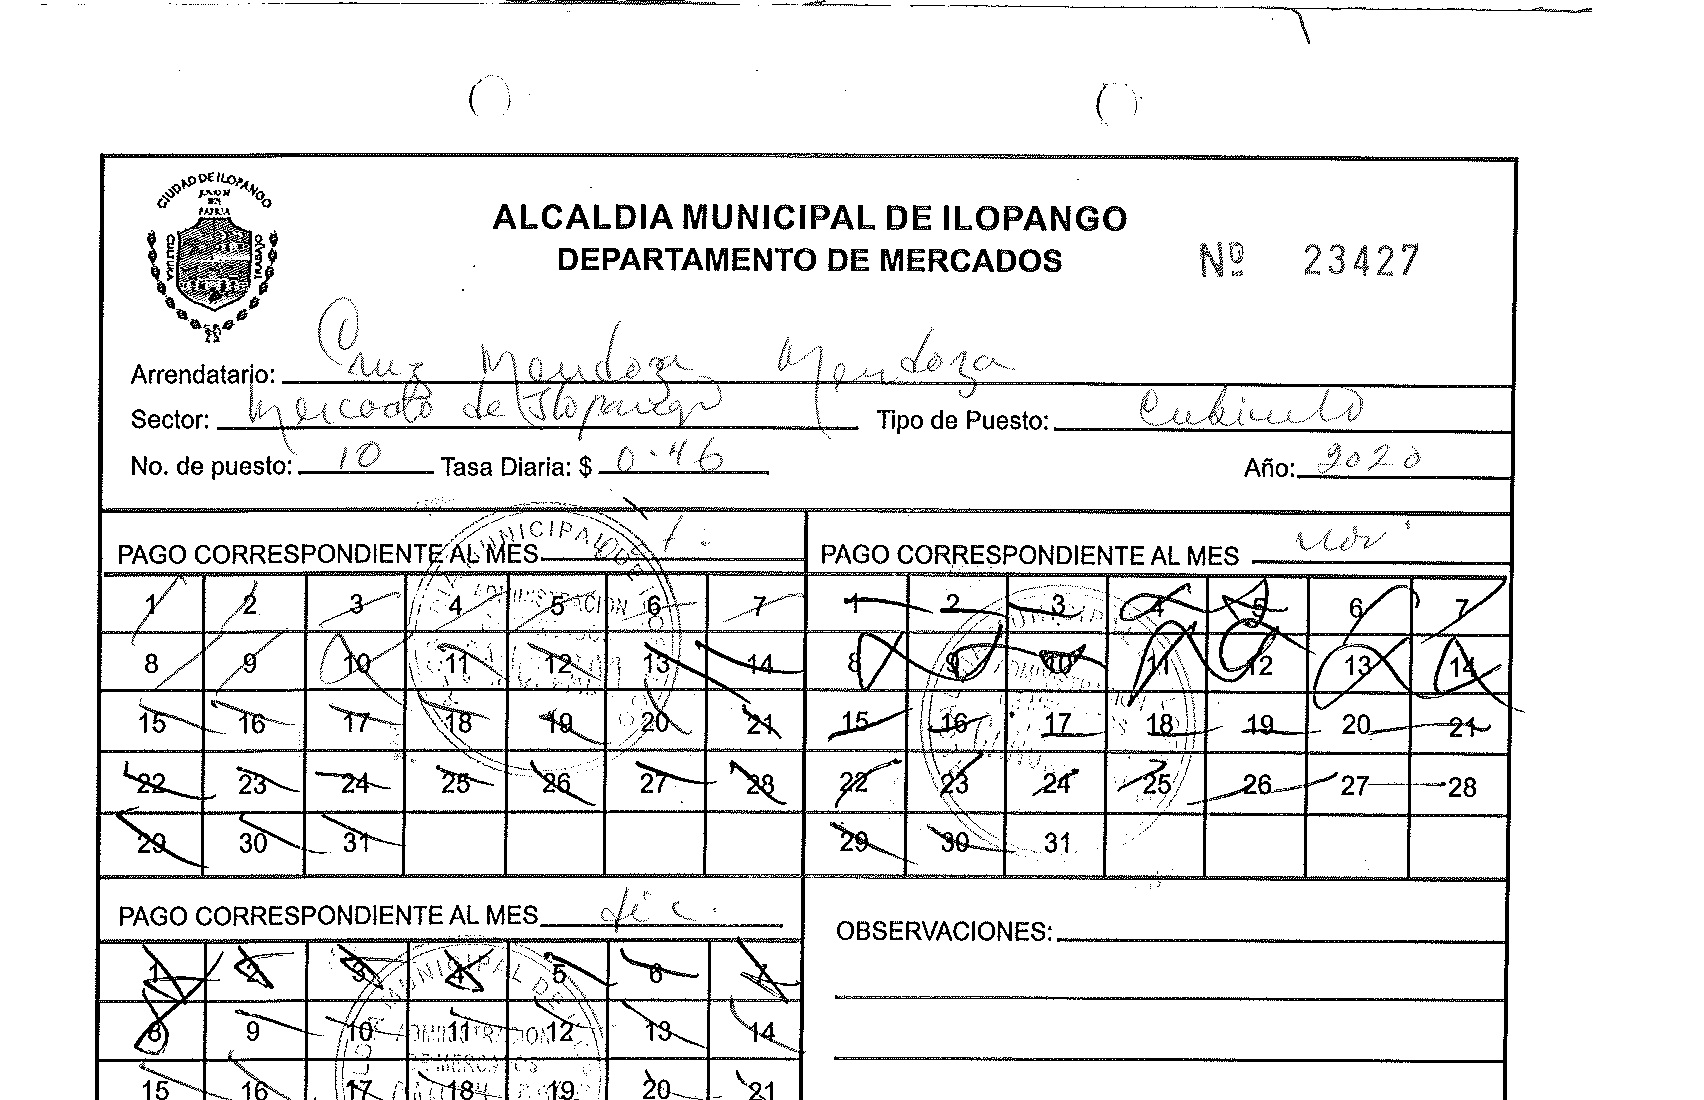 CIUDAD DE ILOPANGO
PATRIA
CULTURA
ALCALDIA MUNICIPAL DE ILOPANGO
DEPARTAMENTO DE MERCADOS
Nº 23427
Arrendatario: Cruz Mendoza Mendoza
Sector: Mercado de Ilopango Tipo de Puesto: Cubiculo
No. de puesto: 10 Tasa Diaria: $ 0.46 Año: 2020
PAGO CORRESPONDIENTE AL MES
1 2 3 4 5 6 7
8 9 10 11 12 13 14
15 16 17 18 19 20 21
22 23 24 25 26 27 28
29 30 31
PAGO CORRESPONDIENTE AL MES nov
1 2 3 4 5 6 7
8 9 10 11 12 13 14
15 16 17 18 19 20 21
22 23 24 25 26 27 28
29 30 31
MUNICIPAL DE
ADMINISTRACION
PAGO CORRESPONDIENTE AL MES dic.
1 2 3 4 5 6 7
8 9 10 11 12 13 14
15 16 17 18 19 20 21
MUNICIPAL DE
ADMINISTRACION
DE MERCADOS
OBSERVACIONES: